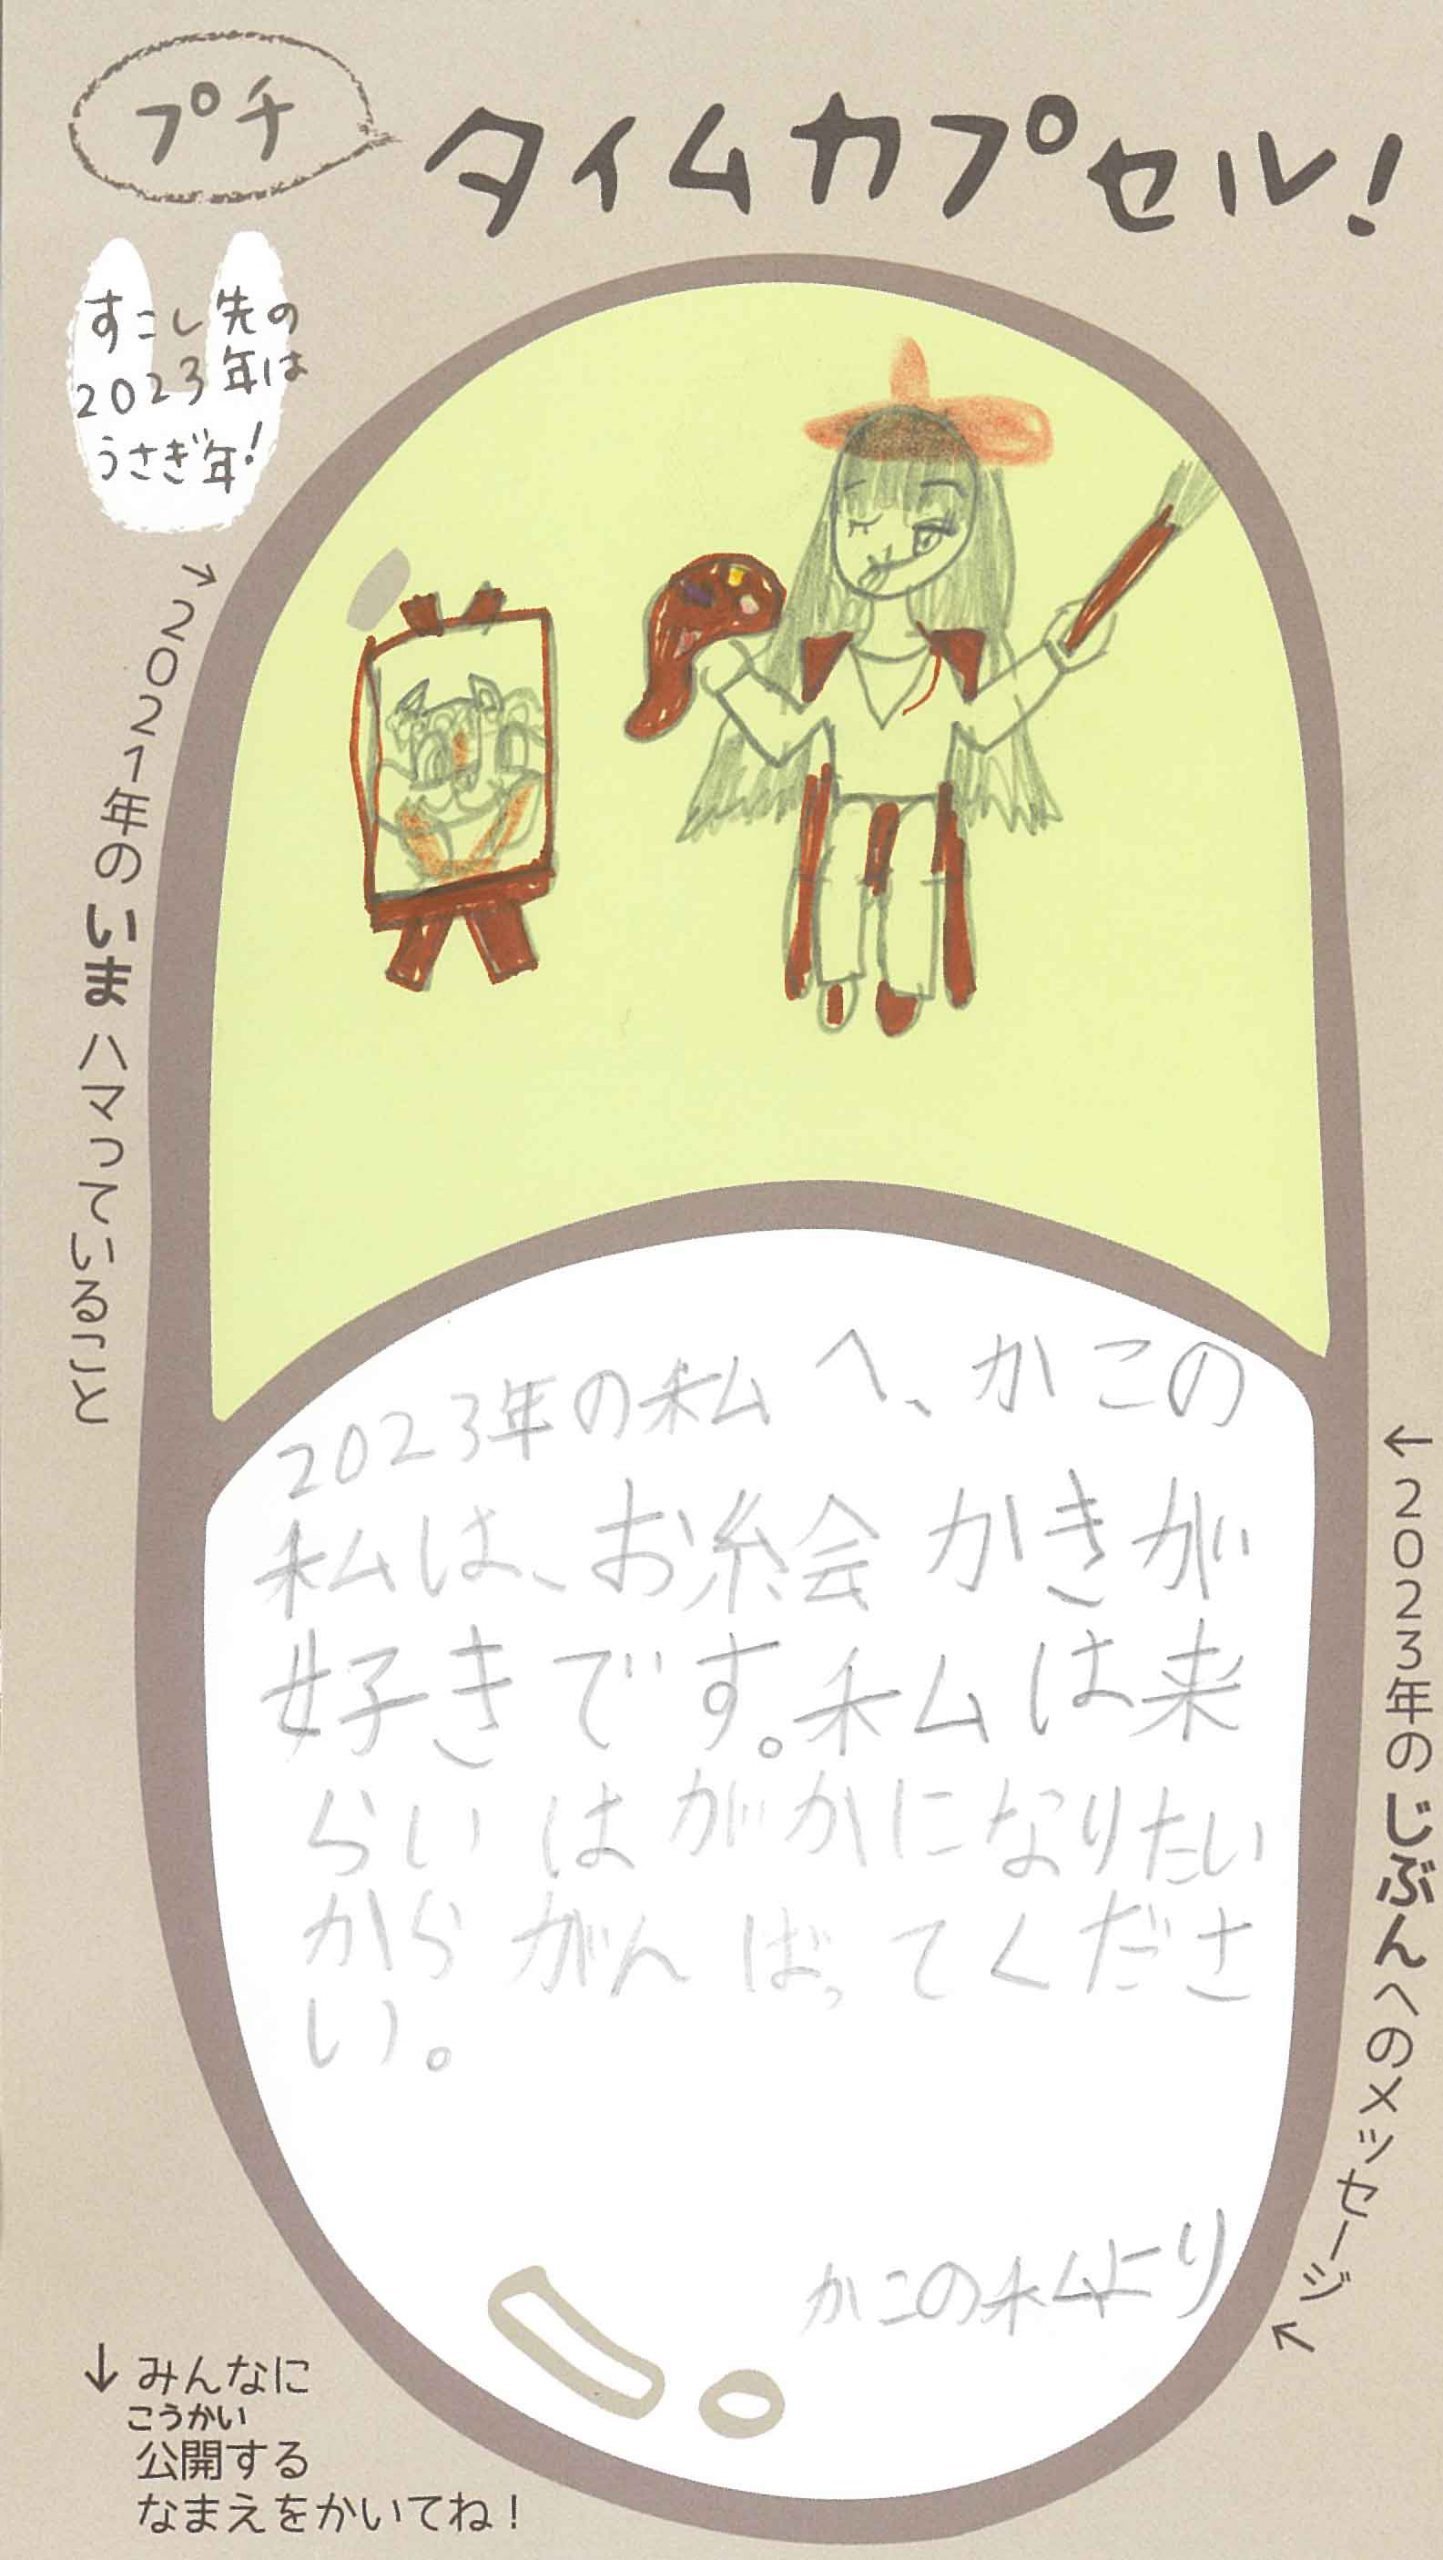 プチ
タイムカプセル！
すこし先の
2023年は
うさぎ年！
→2021年のいまハマっていること
2023年の私へ、かこの
私は、お絵会かきが
好きです。私は来
らいはがかになりたい
からがんばってくださ
い。
かこの私より
←2023年のじぶんへのメッセージ↖
↓みんなに
こうかい
公開する
なまえをかいてね！